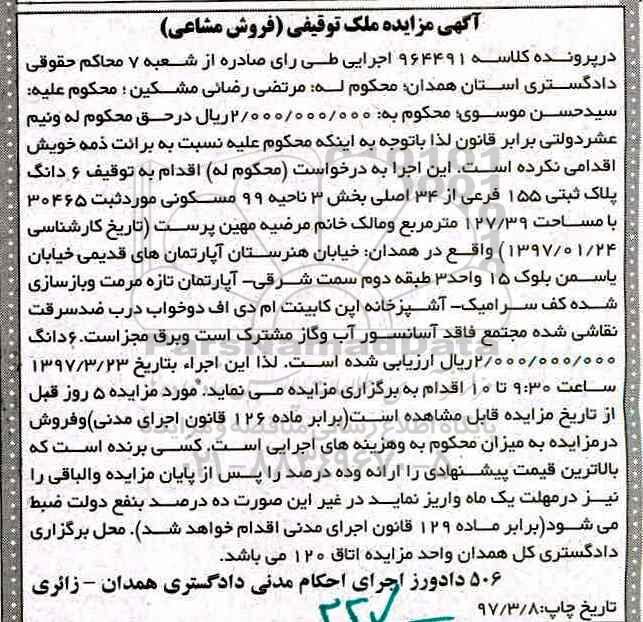 آگهی مزایده ملک توقیفی (فروش مشاعی)
درپرونده کلاسه ۹۶۴۴۹۱ اجرایی طی رای صادره از شعبه ۷ محاکم حقوقی
دادگستری استان همدان؛ محکوم له: مرتضی رضائی مشکین ؛ محکوم علیه:
سیدحسن موسوی؛ محکوم به: ۲/۰۰۰/۰۰۰/۰۰۰ریال درحق محکوم له ونیم
عشردولتی برابر قانون لذا باتوجه به اینکه محکوم علیه نسبت به برائت ذمه خویش
اقدامی نکرده است. این اجرا به درخواست (محکوم له) اقدام به توقیف ۶ دانگ
پلاک ثبتی ۱۵۵ فرعی از ۳۴ اصلی بخش ۳ ناحیه ۹۹ مسکونی موردثبت ۳۰۴۶۵
با مساحت ۱۲۷/۳۹ مترمربع ومالک خانم مرضیه مهین پرست (تاریخ کارشناسی
۱۳۹۷/۰۱/۲۴) واقع در همدان: خیابان هنرستان آپارتمان های قدیمی خیابان
یاسمن بلوک ۱۵ واحد۳ طبقه دوم سمت شرقی- آپارتمان تازه مرمت وبازسازی
شده کف سرامیک- آشپزخانه اپن کابینت ام دی اف دوخواب درب ضدسرقت
نقاشی شده مجتمع فاقد آسانسور آب وگاز مشترک است وبرق مجزاست.۶دانگ
۲/۰۰۰/۰۰۰/۰۰۰ریال ارزیابی شده است. لذا این اجراء بتاریخ ۱۳۹۷/۳/۲۳
ساعت ۹:۳۰ تا ۱۰ اقدام به برگزاری مزایده می نماید. مورد مزایده ۵ روز قبل
از تاریخ مزایده قابل مشاهده است(برابر ماده ۱۲۶ قانون اجرای مدنی)وفروش
درمزایده به میزان محکوم به وهزینه های اجرایی است. کسی برنده است که
بالاترین قیمت پیشنهادی را ارائه وده درصد را پس از پایان مزایده والباقی را
نیز درمهلت یک ماه واریز نماید در غیر این صورت ده درصد بنفع دولت ضبط
می شود(برابر ماده ۱۲۹ قانون اجرای مدنی اقدام خواهد شد). محل برگزاری
دادگستری کل همدان واحد مزایده اتاق ۱۲۰ می باشد.
۵۰۶ دادورز اجرای احکام مدنی دادگستری همدان - زائری
تاریخ چاپ:۹۷/۳/۸